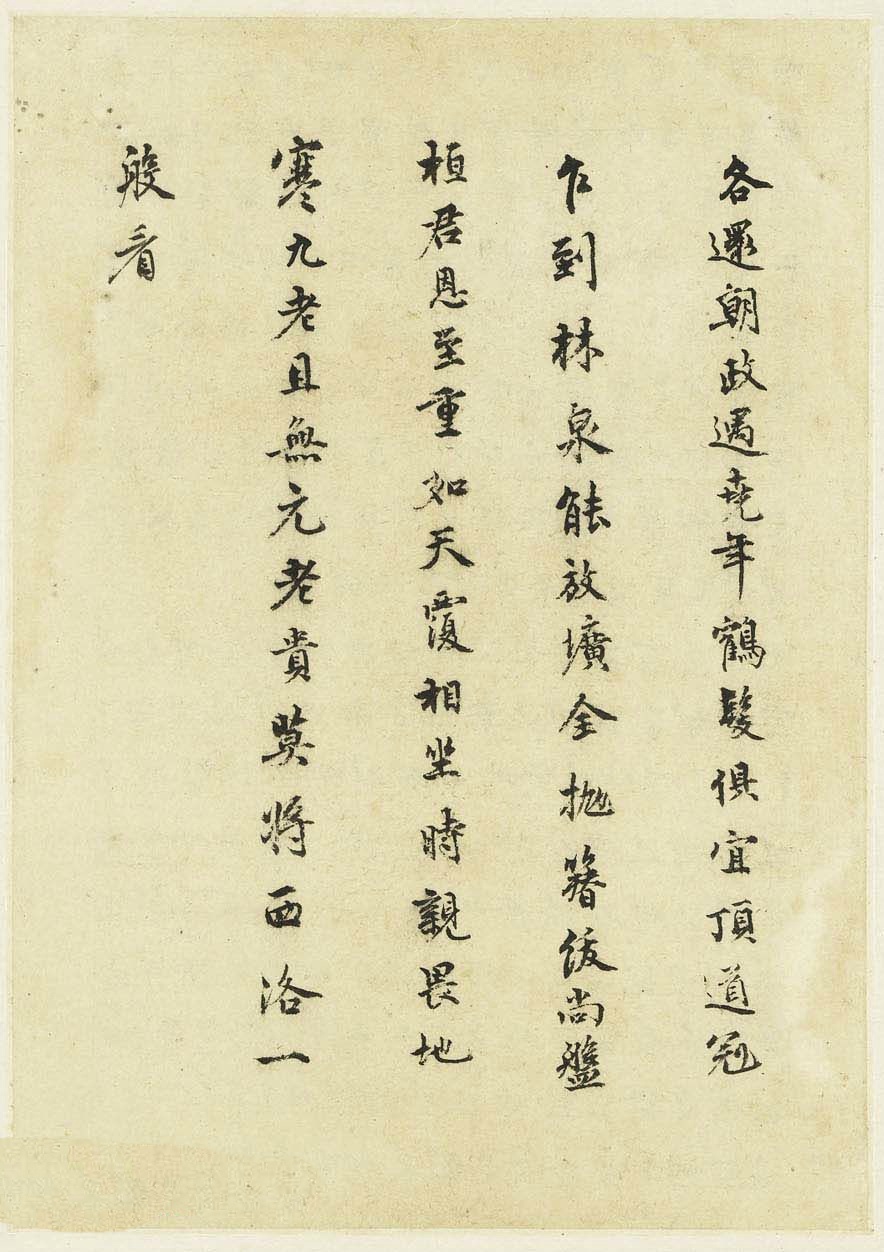 各還朝政遇堯年鶴髮俱宜頂道冠
乍到林泉能放曠全拋簪紱尚盤
桓君恩至重如天覆相坐時親畏地
寒九老且無元老貴莫將西洛一
般看